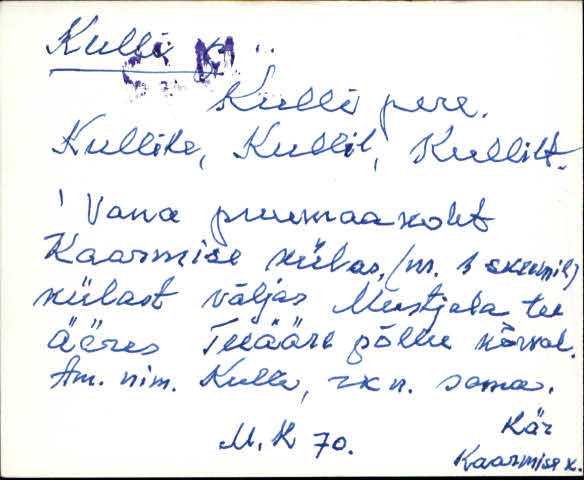 Kulli p.
Kulli pere.
Kullile, Kullil, Kullilt.
Vana pummaakoht
Kaarmise külas, (nr. 1 skeemil)
külast väljas Mustjala tee
ääres Teeääre põllu kõrval.
Am. nim. Kulli, rkn. sama.
M. K 70.
Kär
Kaarmise k.